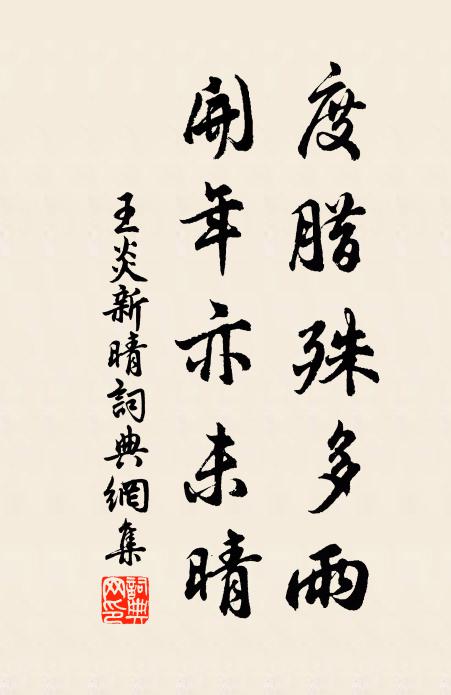 度腊殊多雨
開年亦未晴
王炎新晴詞典網集
詞典
网印